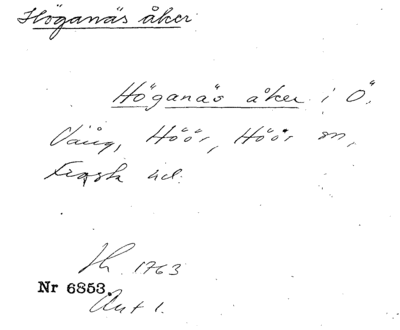 Höganäs åker
Höganäs åker i Ö.
Vång, Höör, Höör sn,
Frosta hd.
Lh. 1763
Nr 6853.
Akt 1.